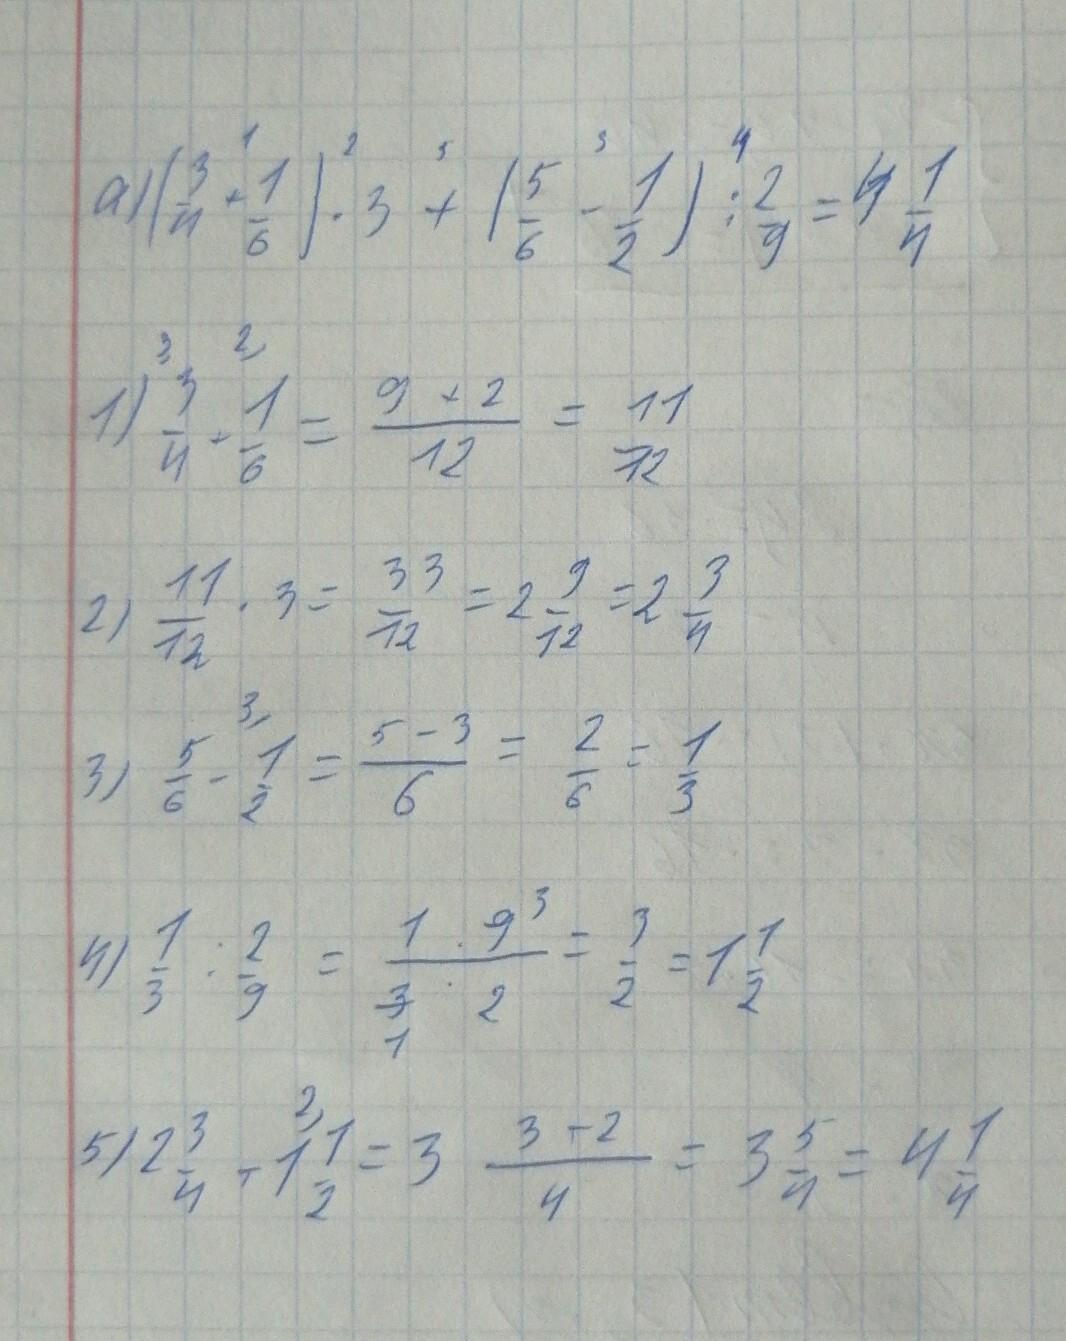 а) (3/4 +¹ 1/6) ·² 3 +⁵ (5/6 -³ 1/2) :⁴ 2/9 = 4 1/4
1) ³⁾3/4 + ²⁾1/6 = (9 + 2)/12 = 11/12
2) 11/12 · 3 = 33/12 = 2 9/12 = 2 3/4
3) 5/6 - ³⁾1/2 = (5 - 3)/6 = 2/6 = 1/3
4) 1/3 : 2/9 = (1 · 9³)/(3₁ · 2) = 3/2 = 1 1/2
5) 2 3/4 + 1 ²⁾1/2 = 3 (3 + 2)/4 = 3 5/4 = 4 1/4